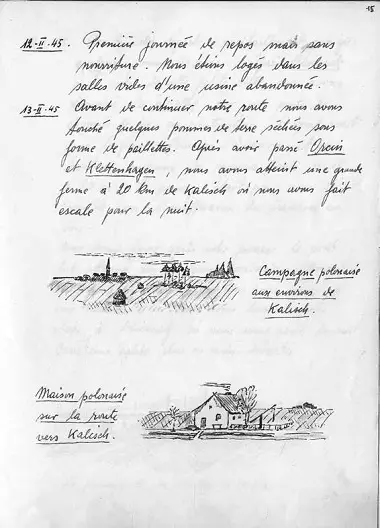 15
12-II-45. Première journée de repos mais sans
nourriture. Nous étions logés dans les
salles vides d'une usine abandonnée.
13-II-45 Avant de continuer notre route nous avons
touché quelques pommes de terre séchées sous
forme de paillettes. Après avoir passé Orcin
et Klettenhagen, nous avons atteint une grande
ferme à 20 Km de Kalisch où nous avons fait
escale pour la nuit.
Campagne polonaise
aux environs de
Kalisch.
Maison polonaise
sur la route
vers Kalisch.